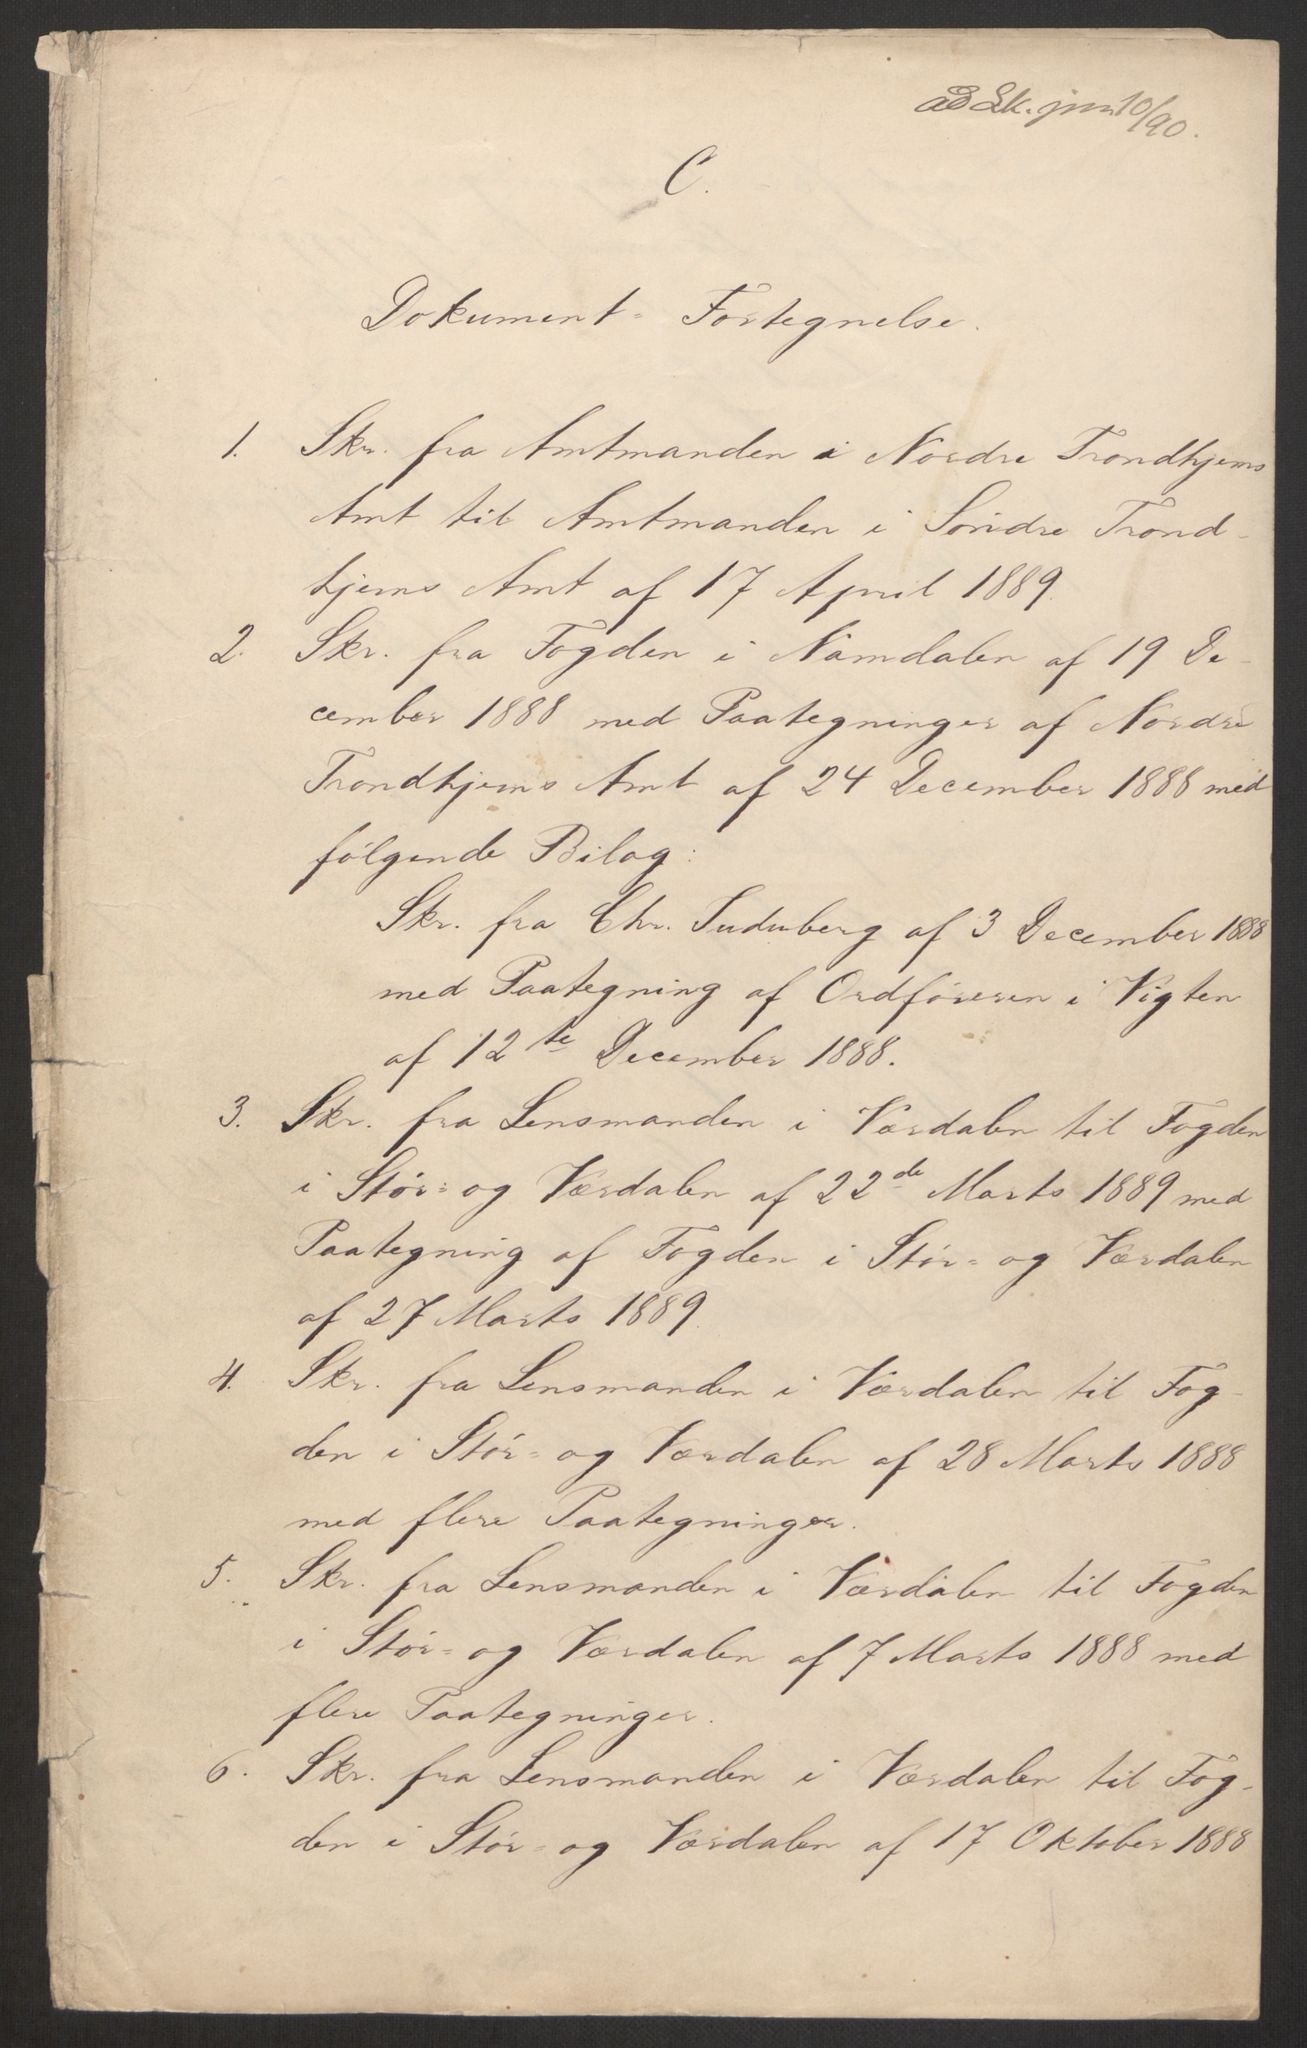 ad Lk. jnr 10/90.
C.
Dokument-Fortegnelse.
1. Skr. fra Amtmanden i Nordre Trondhjems
Amt til Amtmanden i Søndre Trond-
hjems Amt af 17 April 1889.
2. Skr. fra Fogden i Namdalen af 19 De-
cember 1888 med Paategninger af Nordre
Trondhjems Amt af 24 December 1888 med
følgende Bilag:
Skr. fra Chr. af 3 December 1888
med Paategning af Ordføreren i Vigten
af 12te December 1888.
3. Skr. fra Lensmanden i Værdalen til Fogden
i Stør= og Værdalen af 22de Marts 1889 med
Paategning af Fogden i Stør= og Værdalen
af 27 Marts 1889.
4. Skr. fra Lensmanden i Værdalen til Fog-
den i Stør= og Værdalen af 28 Marts 1888
med flere Paategninger.
5. Skr. fra Lensmanden i Værdalen til Fogden
i Stør= og Værdalen af 7 Marts 1888 med
flere Paategninger.
6. Skr. fra Lensmanden i Værdalen til Fog-
den i Stør= og Værdalen af 17 Oktober 1888